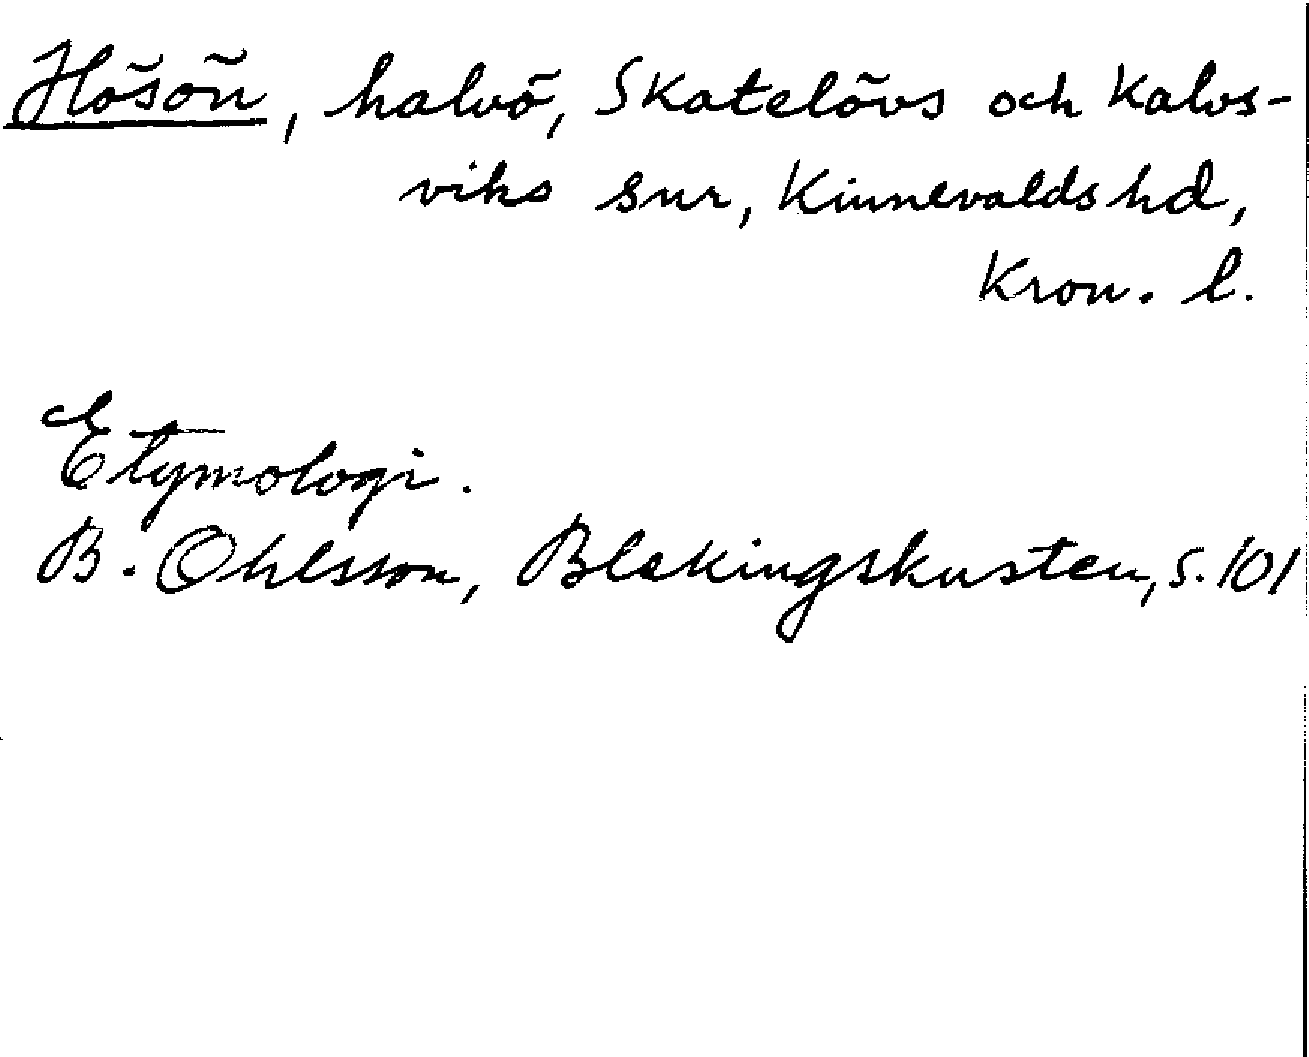 Hösön, halvö, Skatelövs och Kalvs-
viks snr, Kinnevalds hd,
Kron. l.
Etymologi.
B. Ohlsson, Blekingskusten, s. 101